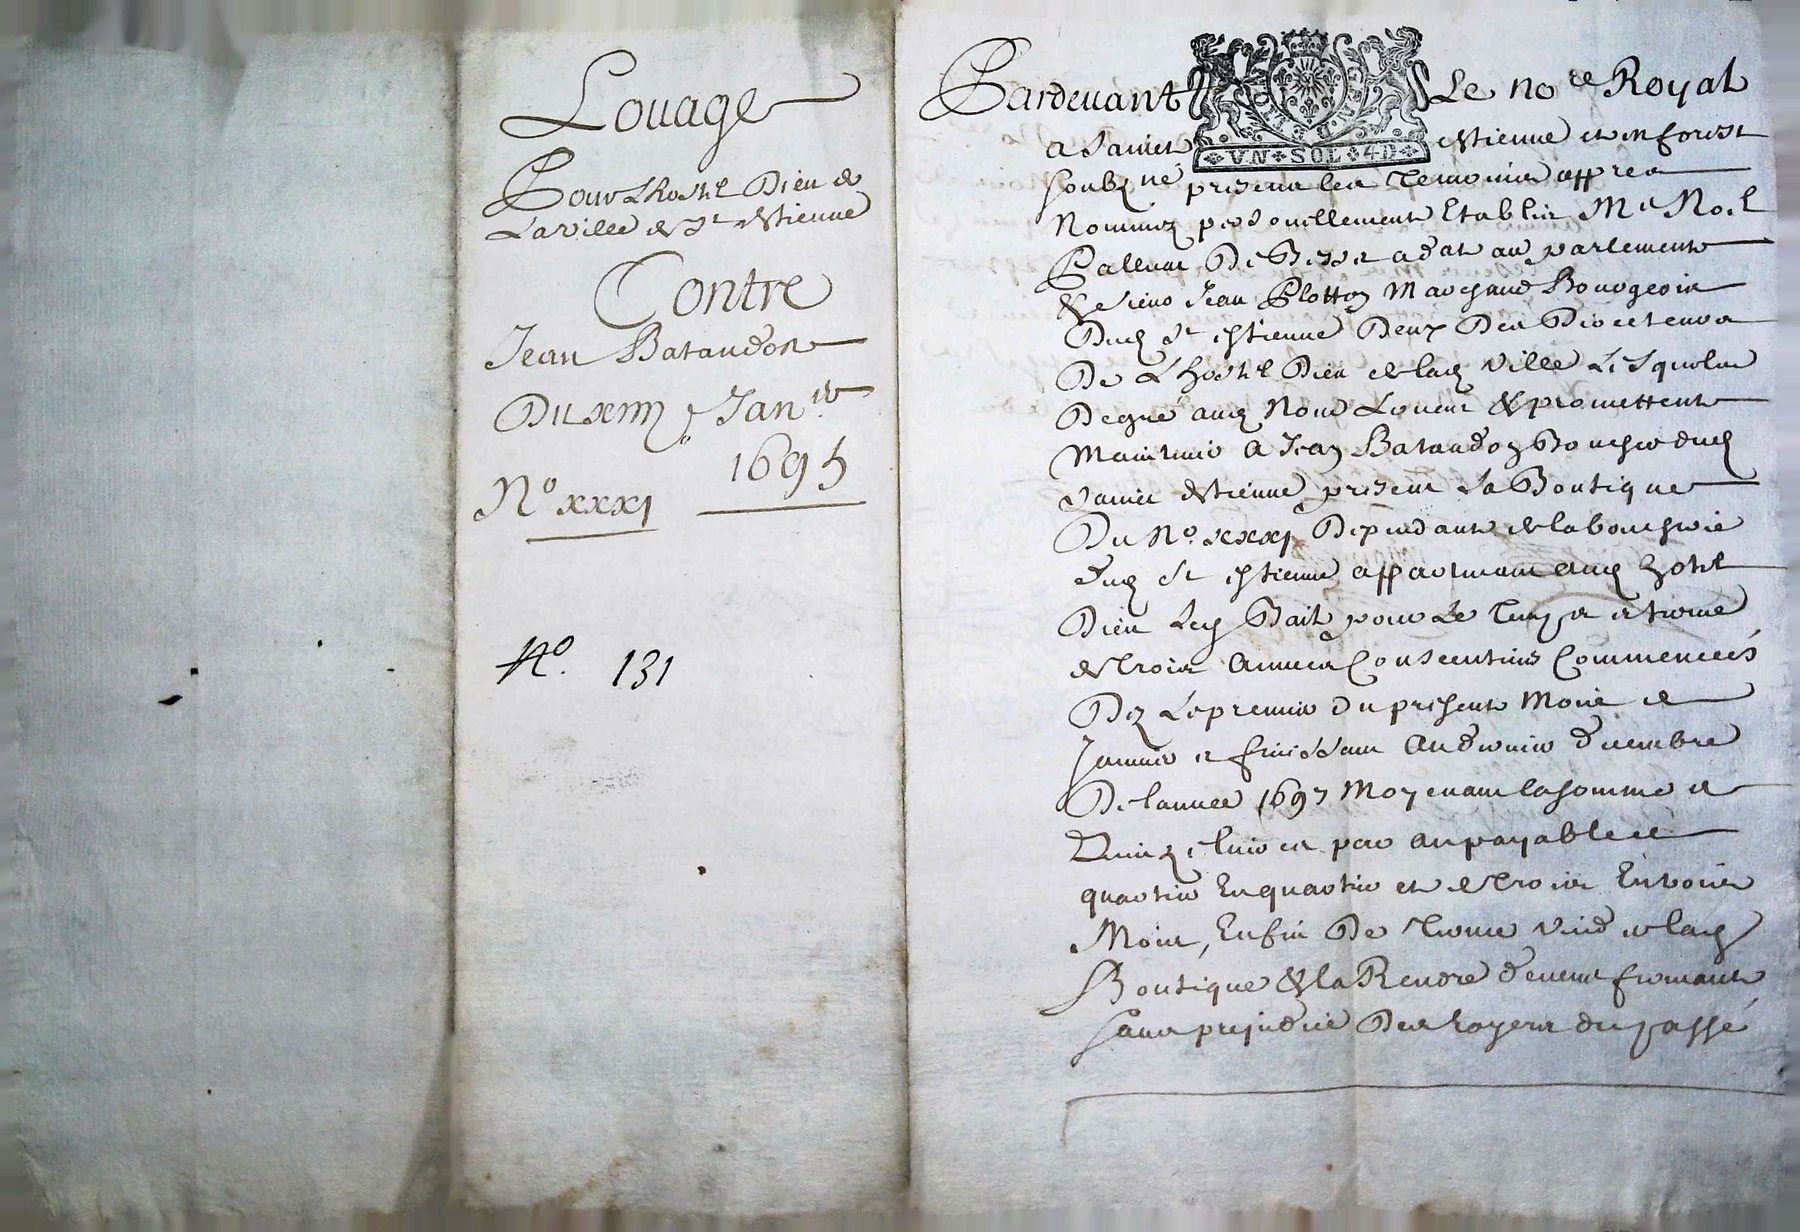 Louage
Pour Lhostel Dieu de
La Ville de St Estienne
Contre
Jean Bataudon
Du xiiij Janer
1695
No xxxj
No. 131
Pardevant Le nore Royal
VN SOL 4D
a Sainct Estienne en forest
soubzné present les Temoins appres
Nommez personellement Establis Me Noel
Palluat De Besset adat au parlement
& sieur Jean Plotton Marchand Bourgeois
Dud St Estienne Deux Des Directeurs
De L'hostel Dieu de lad Ville Lesquels
Degré aud Nom Louent & promettent
Maintenir A Jean Bataudon Boucher dud
Sainct Estienne present La Boutique
Du No. xxxj Dependante de la boucherie
dud St Estienne appartenant aud hotel
Dieu Led Bail pour Le Temps et terme
de Trois Années Consecutives Commencées
Dez Le premier du present Mois de
Janvier et finissant Au dernier decembre
De lannée 1697 Moyenant la somme de
Quinze livres par an payable de
quartier En quartier et de Trois En trois
Mois, En fin De Terme Vuider lad
Boutique & la Rendre
sans prejudice Des Loyers du passé